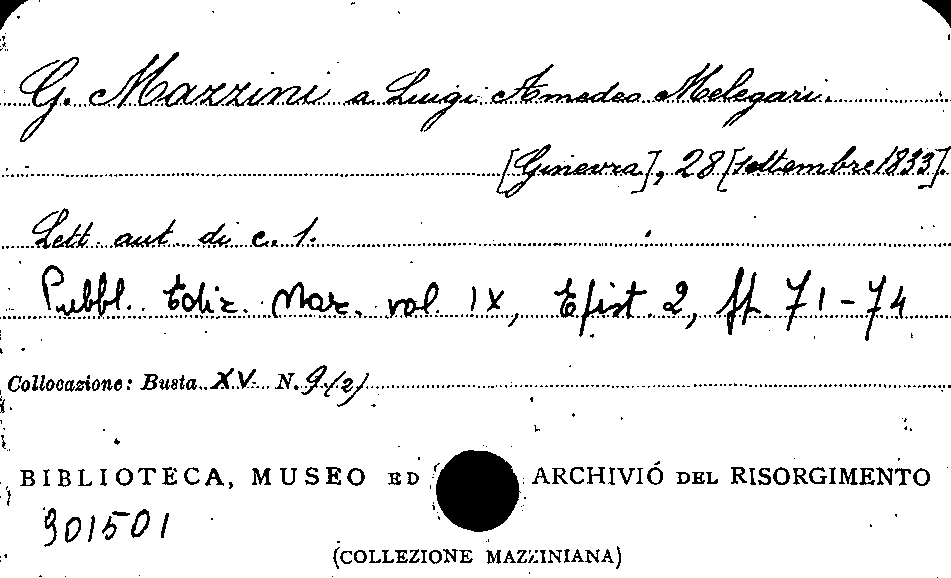 G. Mazzini a Luigi Amedeo Melegari.
[Ginevra], 28 [settembre 1833].
Lett. aut. di c. 1.
Pubbl. Ediz. Naz. vol. IX, Epist. 2, pp. 71-74
Collocazione: Busta XV N. 9 (2)
BIBLIOTECA, MUSEO ED ARCHIVIO DEL RISORGIMENTO
901501
(COLLEZIONE MAZZINIANA)